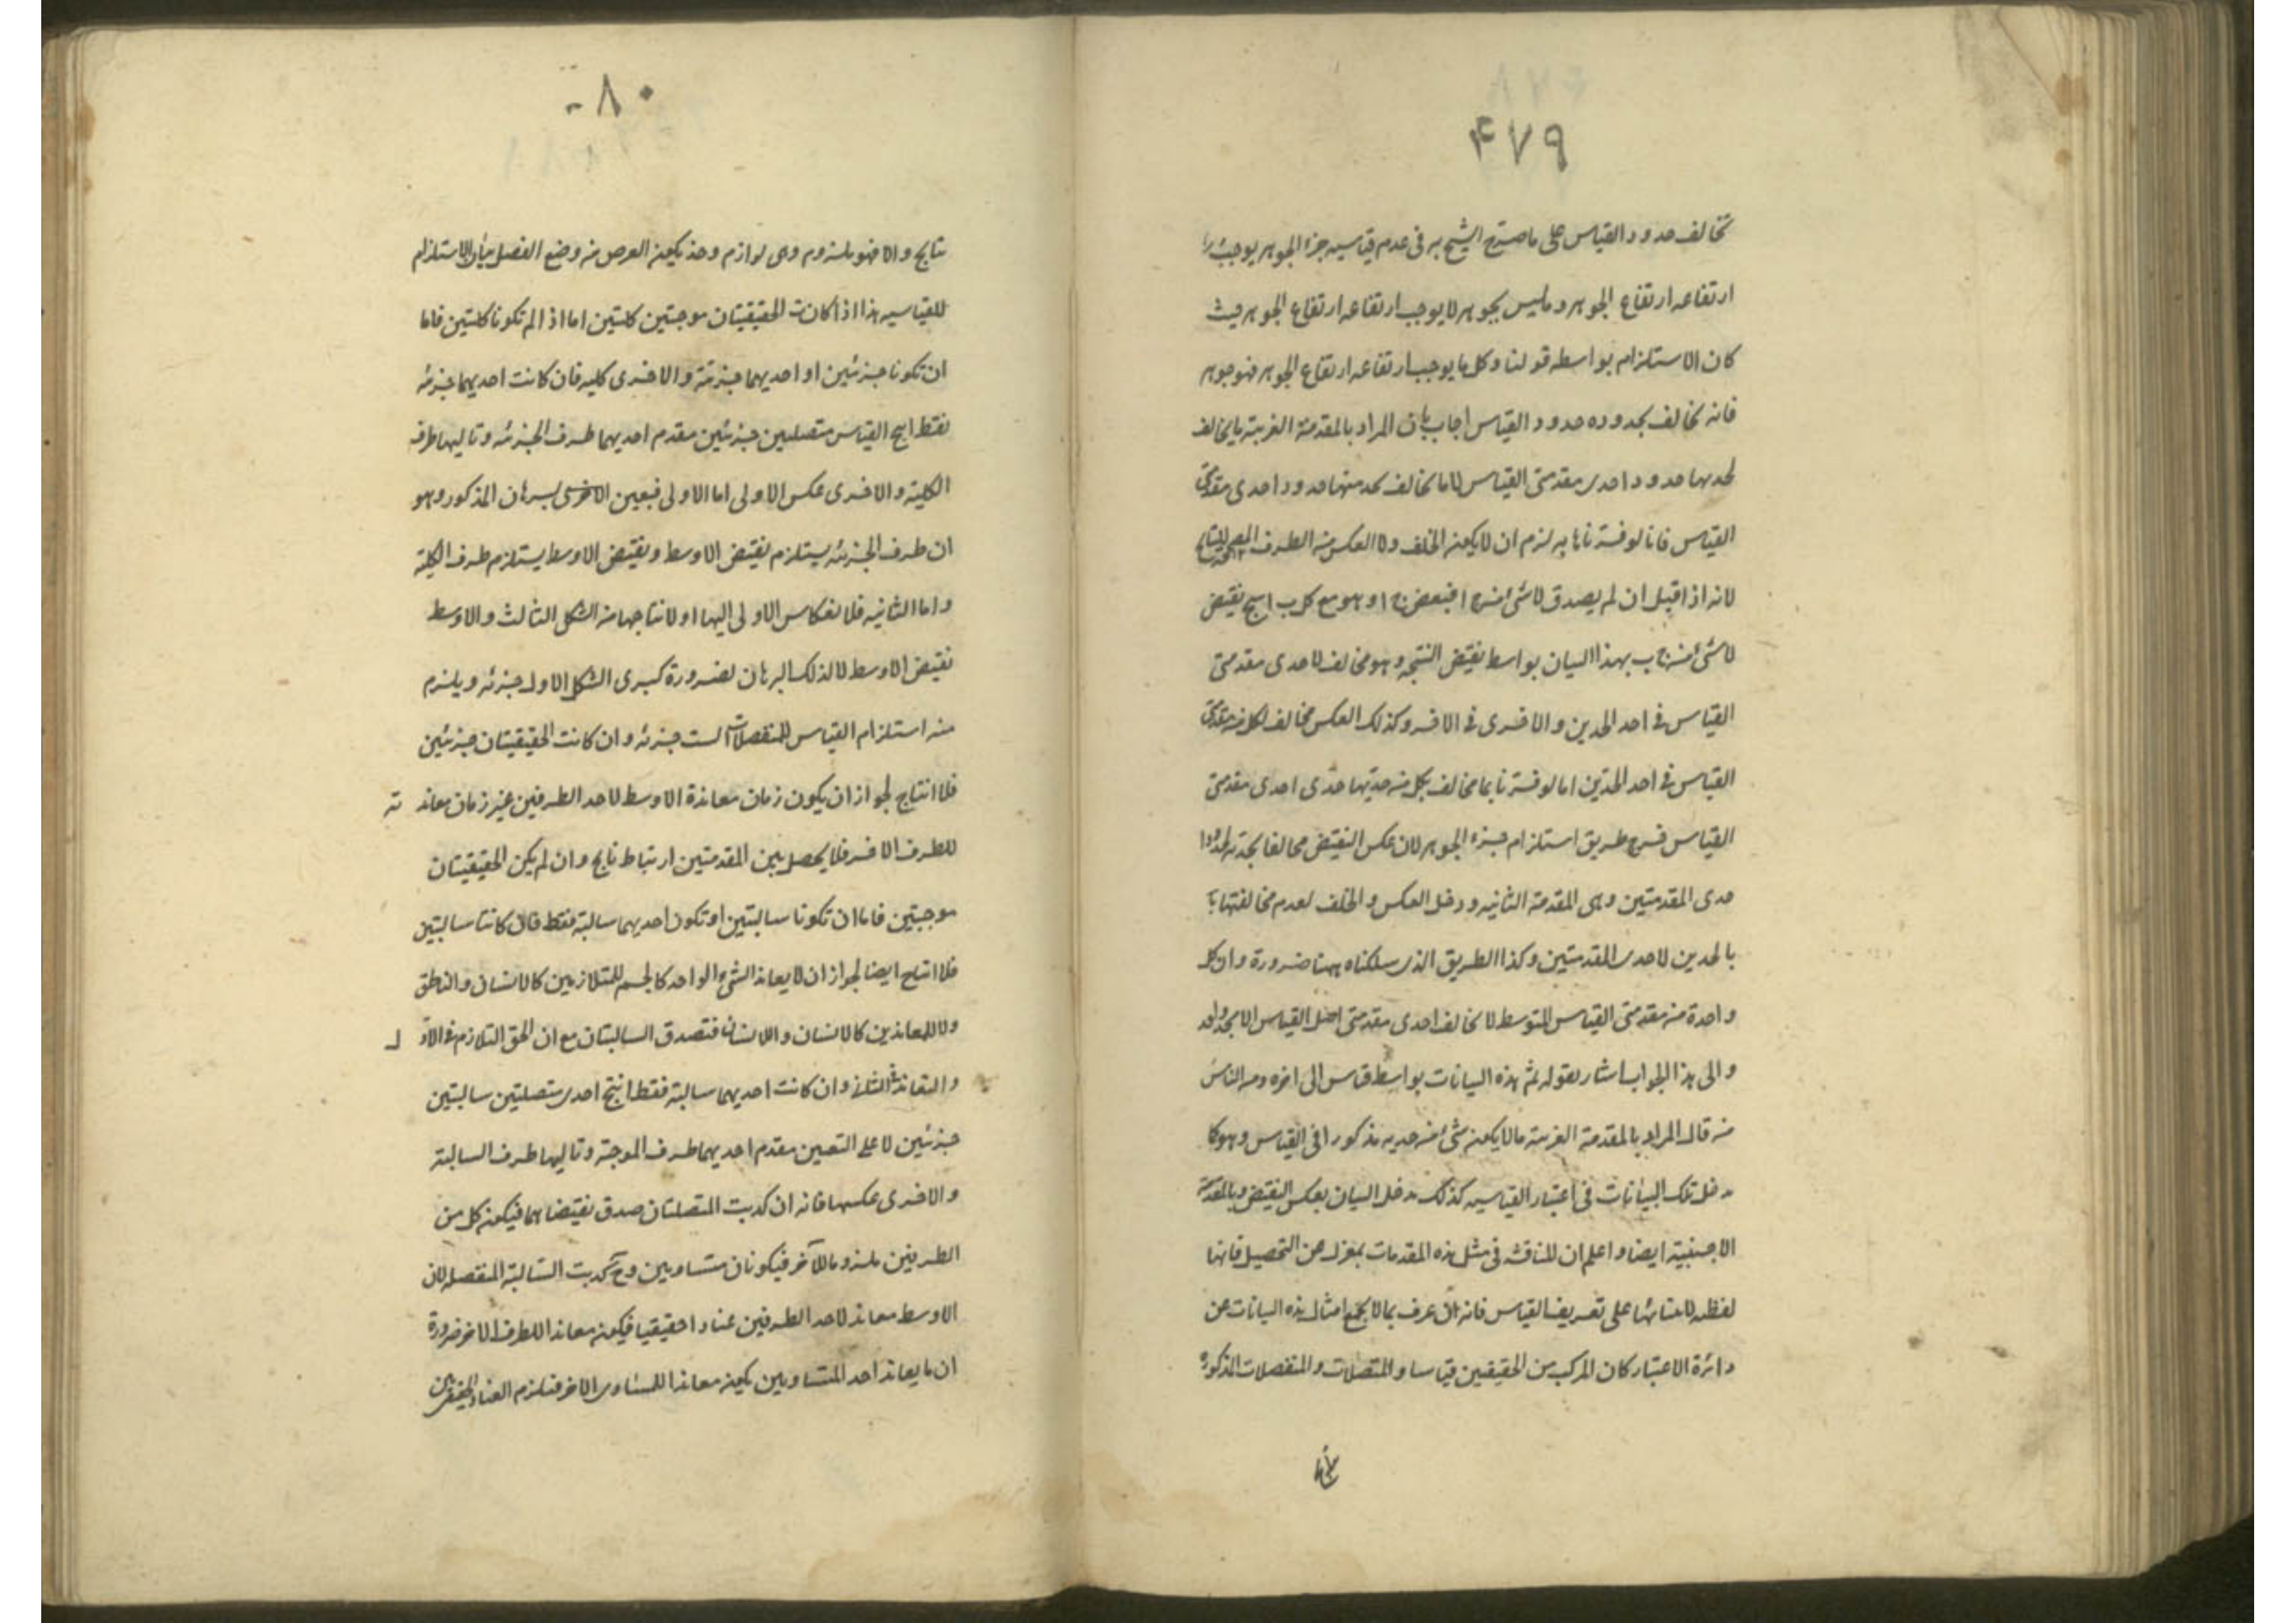 ۴۷۹
تخالف حدود القياس على ما صرح الشيخ به فى عدم قياسيه جزء الجوهر يوجب
ارتفاعه ارتفاع الجوهر وما ليس بجوهر لا يوجب ارتفاعه ارتفاع الجوهر حيث
كان الاستلزام بواسطه قولنا وكل ما يوجب ارتفاعه ارتفاع الجوهر فهو جوهر
فانه تخالف بحدوده حدود القياس اجاب بان المراد بالمقدمة الغريبة ما يخالف
لحديها حدود احدى مقدمتى القياس لا ما تخالف بحد منها حدود احدى مقدمتى
القياس فانا لو فسرناها به لزم ان لا يكون الخلف ولا العكس من الطرف
لانه اذا قيل ان لم يصدق لا شئ من ج ا فبعض ج ا وهو مع كل ب ا ينتج نقيض
لا شئ من ج ب بهذا البيان بواسطه نقيض النتيجه وهو مخالف لاحدى مقدمتى
القياس فى احد الحدين والاخرى فى الاخر وكذلك العكس مخالف لكل من مقدمتى
القياس فى احد الحدين اما لو فسرنا بما يخالف بكل من حديها حدى احدى مقدمتى
القياس خرج طريق استلزام جزء الجوهر لان عكس النقيض مخالفا بحديه
حدى المقدمتين وهى المقدمة الثانيه ودخل العكس والخلف لعدم مخالفتها
بالحدين لاحدى المقدمتين وكذا الطريق الذى سلكناه ههنا ضرورة وان كل
واحدة من مقدمتى القياس المتوسط لا تخالف احدى مقدمتى اصل القياس الا بحد واحد
والى هذا الجواب اشار بقوله ثم هذه البيانات بواسطه قياس الى اخره ومن الناس
من قال المراد بالمقدمة الغريبة ما لا يكون شئ من حديه مذكورا فى القياس وهو كما
يدخل تلك البيانات فى اعتبار القياسيه كذلك يدخل البيان بعكس النقيض وبالمقدمة
الاجنبية ايضا واعلم ان المناقشه فى مثل هذه المقدمات بمعزل عن التحصيل فانها
لفظيه لابتنائها على تعريف القياس فانه ان عرف بما لا يخرج امثال هذه البيانات عن
دائرة الاعتبار كان المركب من الحقيقيتين قياسا والمتصلات والمنفصلات المذكورة
نتايج
۸۰
نتايج والا فهو ملزوم وهى لوازم وحينئذ يكون الغرض من وضع الفصل بيان الاستلزام
للقياسيه هذا اذا كانت الحقيقيتان موجبتين كليتين اما اذا لم تكونا كليتين فاما
ان تكونا جزئيتين او احديهما جزئية والاخرى كليه فان كانت احديهما جزئيه
فقط انتج القياس متصلتين جزئيتين مقدم احديهما طرف الجزئيه وتاليها طرف
الكلية والاخرى عكس الاولى اما الاولى فبعين البرهان المذكور وهو
ان طرف الجزئيه يستلزم نقيض الاوسط ونقيض الاوسط يستلزم طرف الكلية
واما الثانيه فلانعكاس الاولى اليها او لانتاجها من الشكل الثالث والاوسط
نقيض الاوسط لا لذلك البرهان لضرورة كبرى الشكل الاول جزئيه ويلزم
منه استلزام القياس للمنفصلات الست جزئيه وان كانت الحقيقيتان جزئيتين
فلا انتاج لجواز ان يكون زمان معاندة الاوسط لاحد الطرفين غير زمان معاندته
للطرف الاخر فلا يحصل بين المقدمتين ارتباط ناتج وان لم يكن الحقيقيتان
موجبتين فاما ان تكونا سالبتين او تكون احديهما سالبة فقط فان كانتا سالبتين
فلا انتاج ايضا لجواز ان لا يعاند الشئ الواحد كالجسم للمتلازمين كالانسان والناطق
ولا للمعاندين كالانسان واللاانسان فتصدق السالبتان مع ان الحق التلازم فى الاول
والتعاند فى الثانى وان كانت احديهما سالبة فقط انتج احدى متصلتين سالبتين
جزئيتين لا على التعيين مقدم احديهما طرف الموجبة وتاليها طرف السالبة
والاخرى عكسها فانه ان كذبت المتصلتان صدق نقيضاهما فيكون كل من
الطرفين ملزوما للآخر فيكونان متساويين وح كذبت السالبة المنفصله لان
الاوسط معاند لاحد الطرفين عنادا حقيقيا فيكون معاندا للطرف الاخر ضرورة
ان ما يعاند احد المتساويين يكون معاندا للمساوى الاخر فيلزم العناد الحقيقى بين